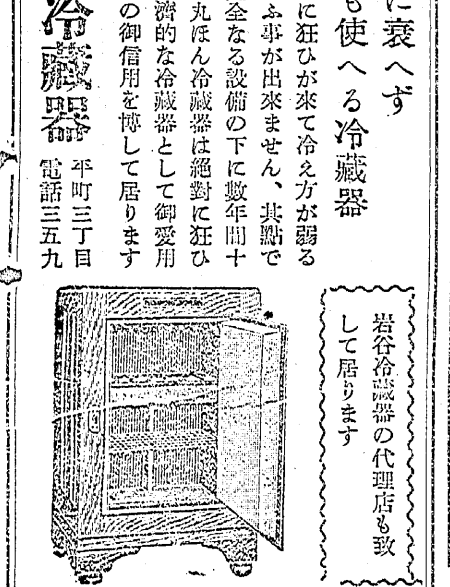 に衰へず
も使へる冷藏器
に狂ひが來て冷え方が弱る
ふ事が出來ません、其點で
全なる設備の下に數年間十
丸ほん冷藏器は絕對に狂ひ
濟的な冷藏器として御愛用
の御信用を博して居ります
冷藏器
平町三丁目
電話三五九
岩谷冷藏器の代理店も致
して居ります